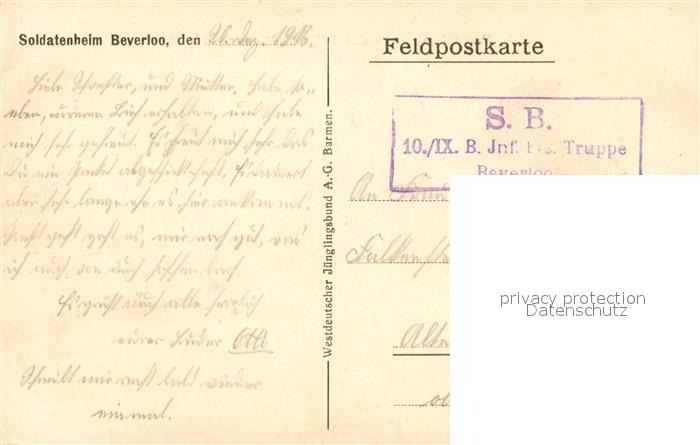 Soldatenheim Beverloo, den 20. Dez. 1916.
Liebe Schwester, und Mutter, habe so-
eben, Brief erhalten, und habe
mich sehr gefreut. Es freut mich sehr das
Du ein Paket abgeschickt hast. Es dauert
aber sehr lange ehe es hier ankommt.
geht es, mir noch gut, was
ich auch von Euch hoffen
Es grüßt Euch alle herzlich
eurer Bruder Otto
Schreibt mir recht bald wieder
einmal.
Westdeutscher Jünglingsbund A.-G. Barmen.
Feldpostkarte
S. B.
10./IX. B. Jnf. Truppe
Beverloo
An
privacy protection
Datenschutz